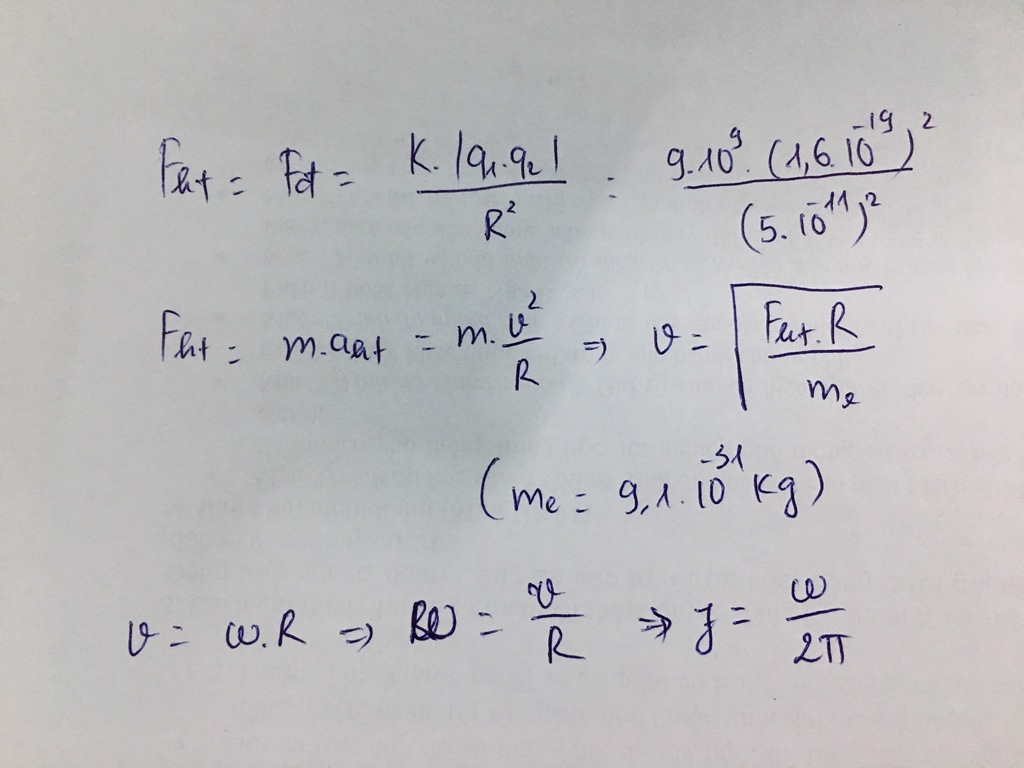 Fht = Fđt = K.|q₁.q₂| / R² = 9.10⁹.(1,6.10⁻¹⁹)² / (5.10⁻¹¹)²
Fht = m.aht = m.v²/R ⇒ v = √(Fht.R / me)
(me = 9,1.10⁻³¹ Kg)
v = ω.R ⇒ ω = v/R ⇒ f = ω/2π